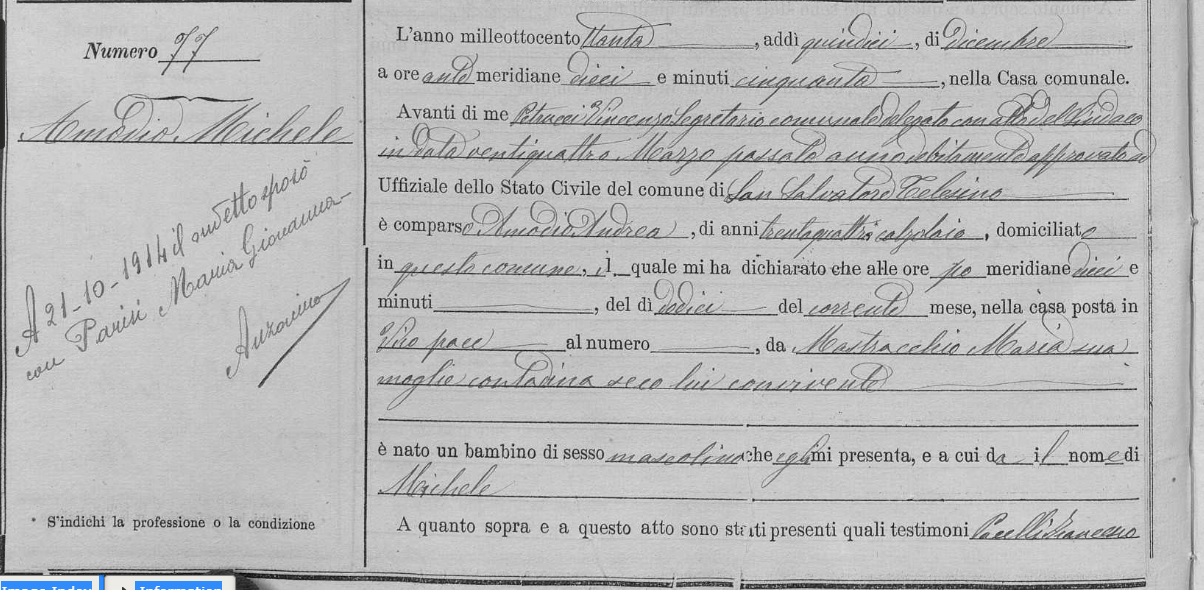 Numero 77
Amodio Michele
A 21-10-1914 il sudetto sposò
con Parisi Maria Giovanna
* S'indichi la professione o la condizione
L'anno milleottocento ttanta, addì quindici, di Dicembre
a ore ante meridiane dieci e minuti cinquanta, nella Casa comunale.
Avanti di me Petrucci Vincenzo Segretario comunale delegato con atto del Sindaco
in data ventiquattro Marzo passato anno debitamente approvato
Uffiziale dello Stato Civile del comune di San Salvatore Telesino
è comparso Amodio Andrea, di anni trentaquattro calzolaio, domiciliato
in questo comune, il quale mi ha dichiarato che alle ore po meridiane dieci e
minuti, del dì dodici del corrente mese, nella casa posta in
Vico pace al numero, da Mastracchio Maria sua
moglie contadina seco lui convivente
è nato un bambino di sesso mascolino che egli mi presenta, e a cui da il nome di
Michele
A quanto sopra e a questo atto sono stati presenti quali testimoni Pacelli Francesco
Image Index
Information